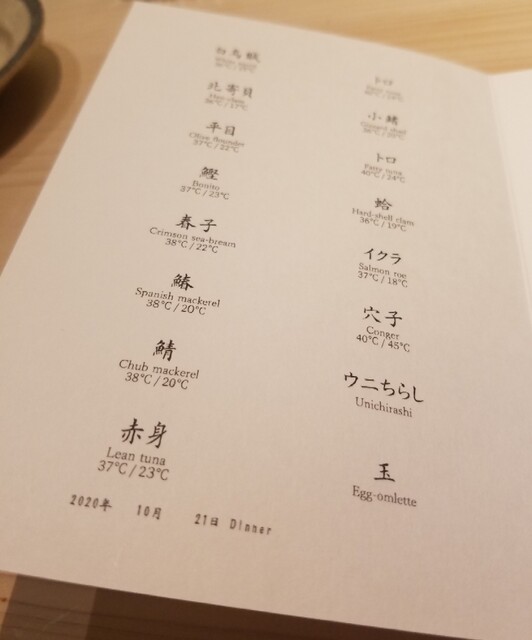 平目
Olive flounder
37℃/22℃
鰹
Bonito
37℃/23℃
春子
Crimson sea-bream
38℃/22℃
鰆
Spanish mackerel
38℃/20℃
鯖
Chub mackerel
38℃/20℃
赤身
Lean tuna
37℃/23℃
2020年 10月 21日 Dinner
トロ
小鰭
トロ
Fatty tuna
40℃/24℃
蛤
Hard-shell clam
36℃/19℃
イクラ
Salmon roe
37℃/18℃
穴子
Conger
40℃/45℃
ウニちらし
Unichirashi
玉
Egg-omlette